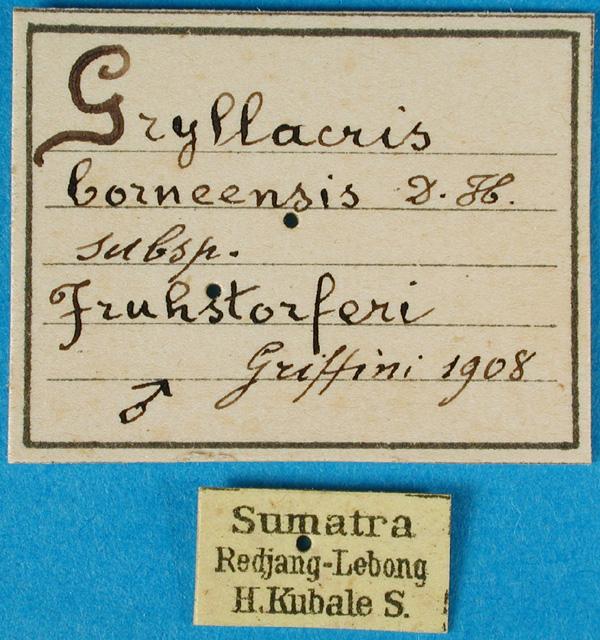 Gryllacris
borneensis D. H.
subsp.
Fruhstorferi
Griffini 1908
♂
Sumatra
Redjang-Lebong
H. Kubale S.